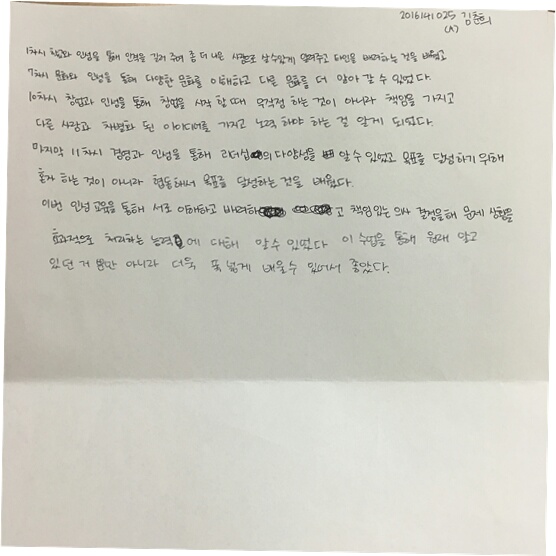 2016141025 김준희
(A)
1차시 학교와 인성을 통해 인격을 길러 주며 좀 더 나은 사람으로 살 수 있게 알려주고 타인을 배려하는 것을 배웠고
7차시 문화와 인성을 통해 다양한 문화를 이해하고 다른 문화를 더 알아 갈 수 있었다.
10차시 창업과 인성을 통해 창업을 시작 할 때 무작정 하는 것이 아니라 책임을 가지고
다른 사람과 차별화 된 아이디어를 가지고 노력 해야 하는 걸 알게 되었다.
마지막 11차시 경영과 인성을 통해 리더십의 다양성을 알 수 있었고 목표를 달성하기 위해
혼자 하는 것이 아니라 협동해서 목표를 달성하는 것을 배웠다.
이번 인성 교육을 통해 서로 이해하고 배려하고 책임있는 의사 결정을 해 문제 상황을
효과적으로 처리하는 능력에 대해 알 수 있었다 이 수업을 통해 원래 알고
있던 거 뿐만 아니라 더욱 폭 넓게 배울 수 있어서 좋았다.